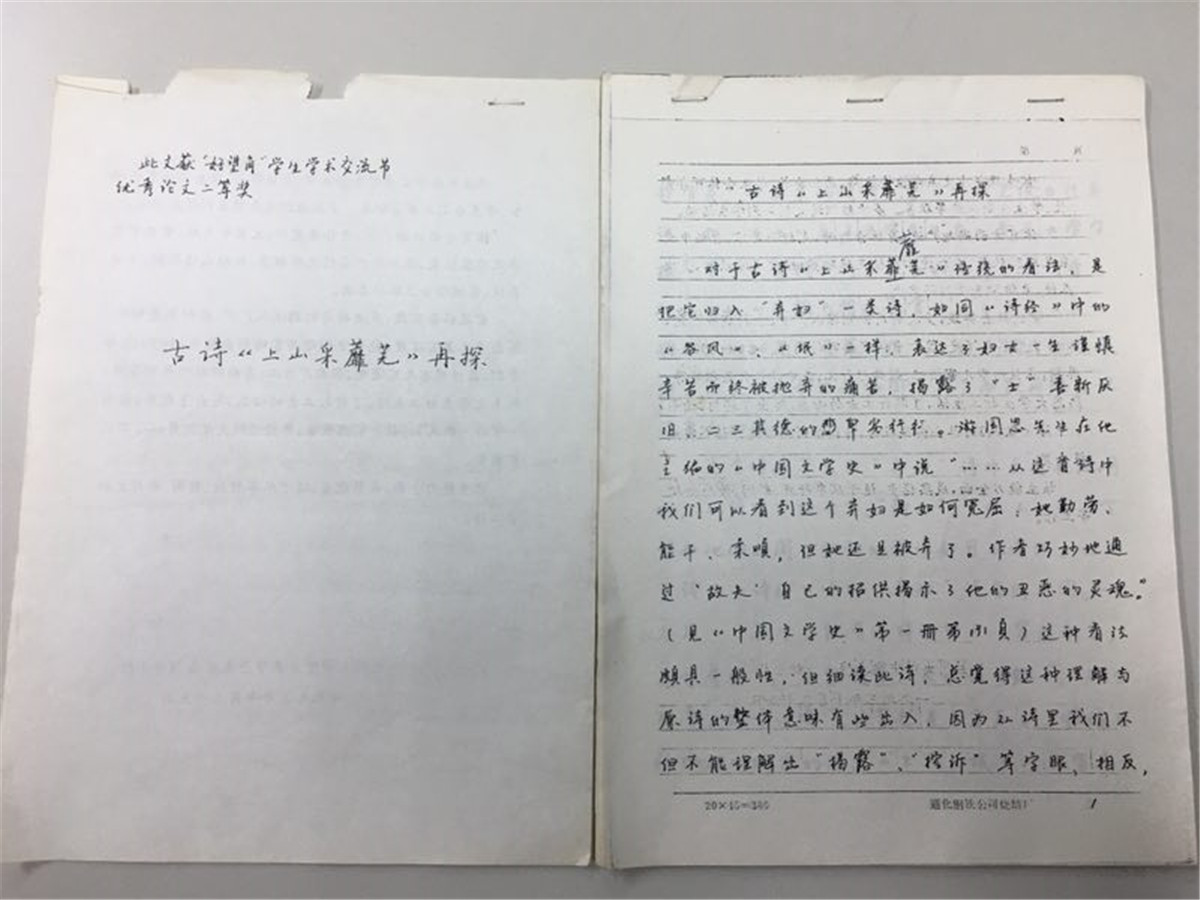 此文获“好望角”学生学术交流节
优秀论文二等奖
古诗《上山采蘼芜》再探
古诗《上山采蘼芜》再探
蘼
对于古诗《上山采蘼芜》传统的看法，是
把它归入“弃妇”一类诗，如同《诗经》中的
《谷风》、《氓》一样，表达了妇女一生谨慎
辛苦而终被抛弃的痛苦，揭露了“士”喜新厌
旧、二三其德的卑劣行书。游国恩先生在他
主编的《中国文学史》中说“……从这首诗中
我们可以看到这个弃妇是如何冤屈，她勤劳、
能干、柔顺，但她还是被弃了。作者巧妙地通
过‘故夫’自己的招供揭示了他的丑恶的灵魂。”
（见《中国文学史》第一册第191页）这种看法
颇具一般性，但细读此诗，总觉得这种理解与
原诗的整体意味有些出入，因为从诗里我们不
但不能理解出“揭露”、“控诉”等字眼，相反，
20×15=300
通化钢铁公司烧结厂
1